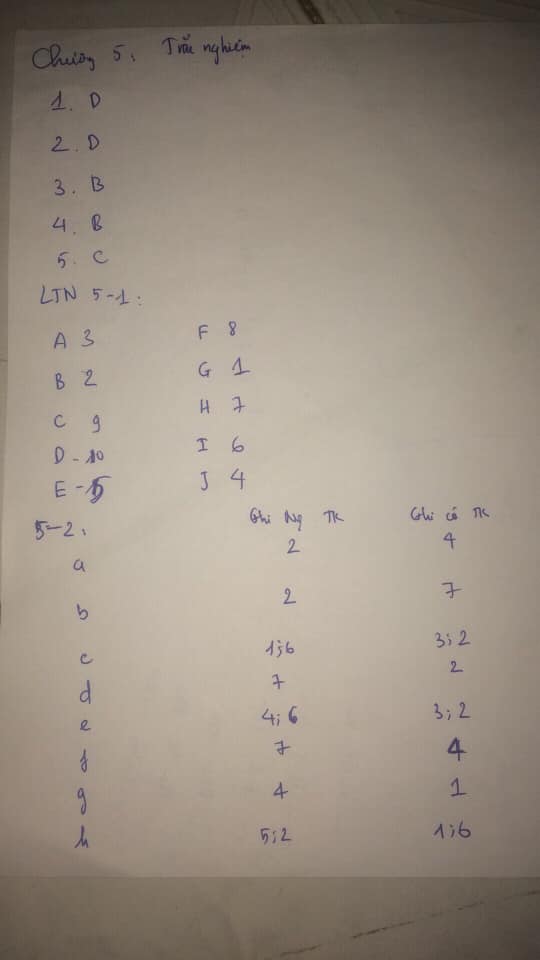 Chương 5: Trắc nghiệm
1. D
2. D
3. B
4. B
5. C
LTN 5-1:
A 3 F 8
B 2 G 1
C 9 H 7
D-10 I 6
E-5 J 4
5-2: Ghi Nợ TK Ghi có TK
a 2 4
b 2 7
c 1;6 3;2
d 7 2
e 4;6 3;2
f 7 4
g 4 1
h 5;2 1;6